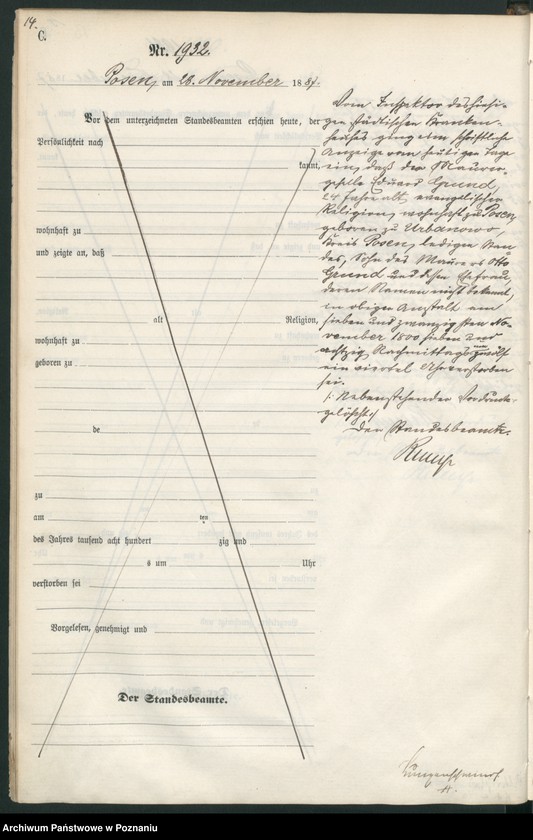 14.
C.
Nr. 1932.
Posen, am 28. November 1887.
Vor dem unterzeichneten Standesbeamten erschien heute, der
Persönlichkeit nach
kannt,
wohnhaft zu
und zeigte an, daß
alt Religion,
wohnhaft zu
geboren zu
de
zu
am ten
des Jahres tausend acht hundert zig und
s um Uhr
verstorben sei
Vorgelesen, genehmigt und
Der Standesbeamte.
Vom Inspektor des hiesi-
gen städtischen Kranken-
hauses ging eine schriftliche
Anzeige vom heutigen Tage
ein, daß der Maurer-
geselle Eduard Grund,
24 Jahre alt, evangelischer
Religion, wohnhaft zu Posen,
geboren zu Urbanowo,
Kreis Posen, ledigen Stan-
des, Sohn des Maurers Otto
Grund und dessen Ehefrau,
deren Namen nicht bekannt,
in obigen Anstalt am
sieben und zwanzigsten No-
vember 1800 sieben und
achtzig Nachmittags zwölf
ein viertel Uhr verstorben
sei.
/: Nebenstehender Vordruck
gelöscht :/
Der Standesbeamte.
Archiwum Państwowe w Poznaniu